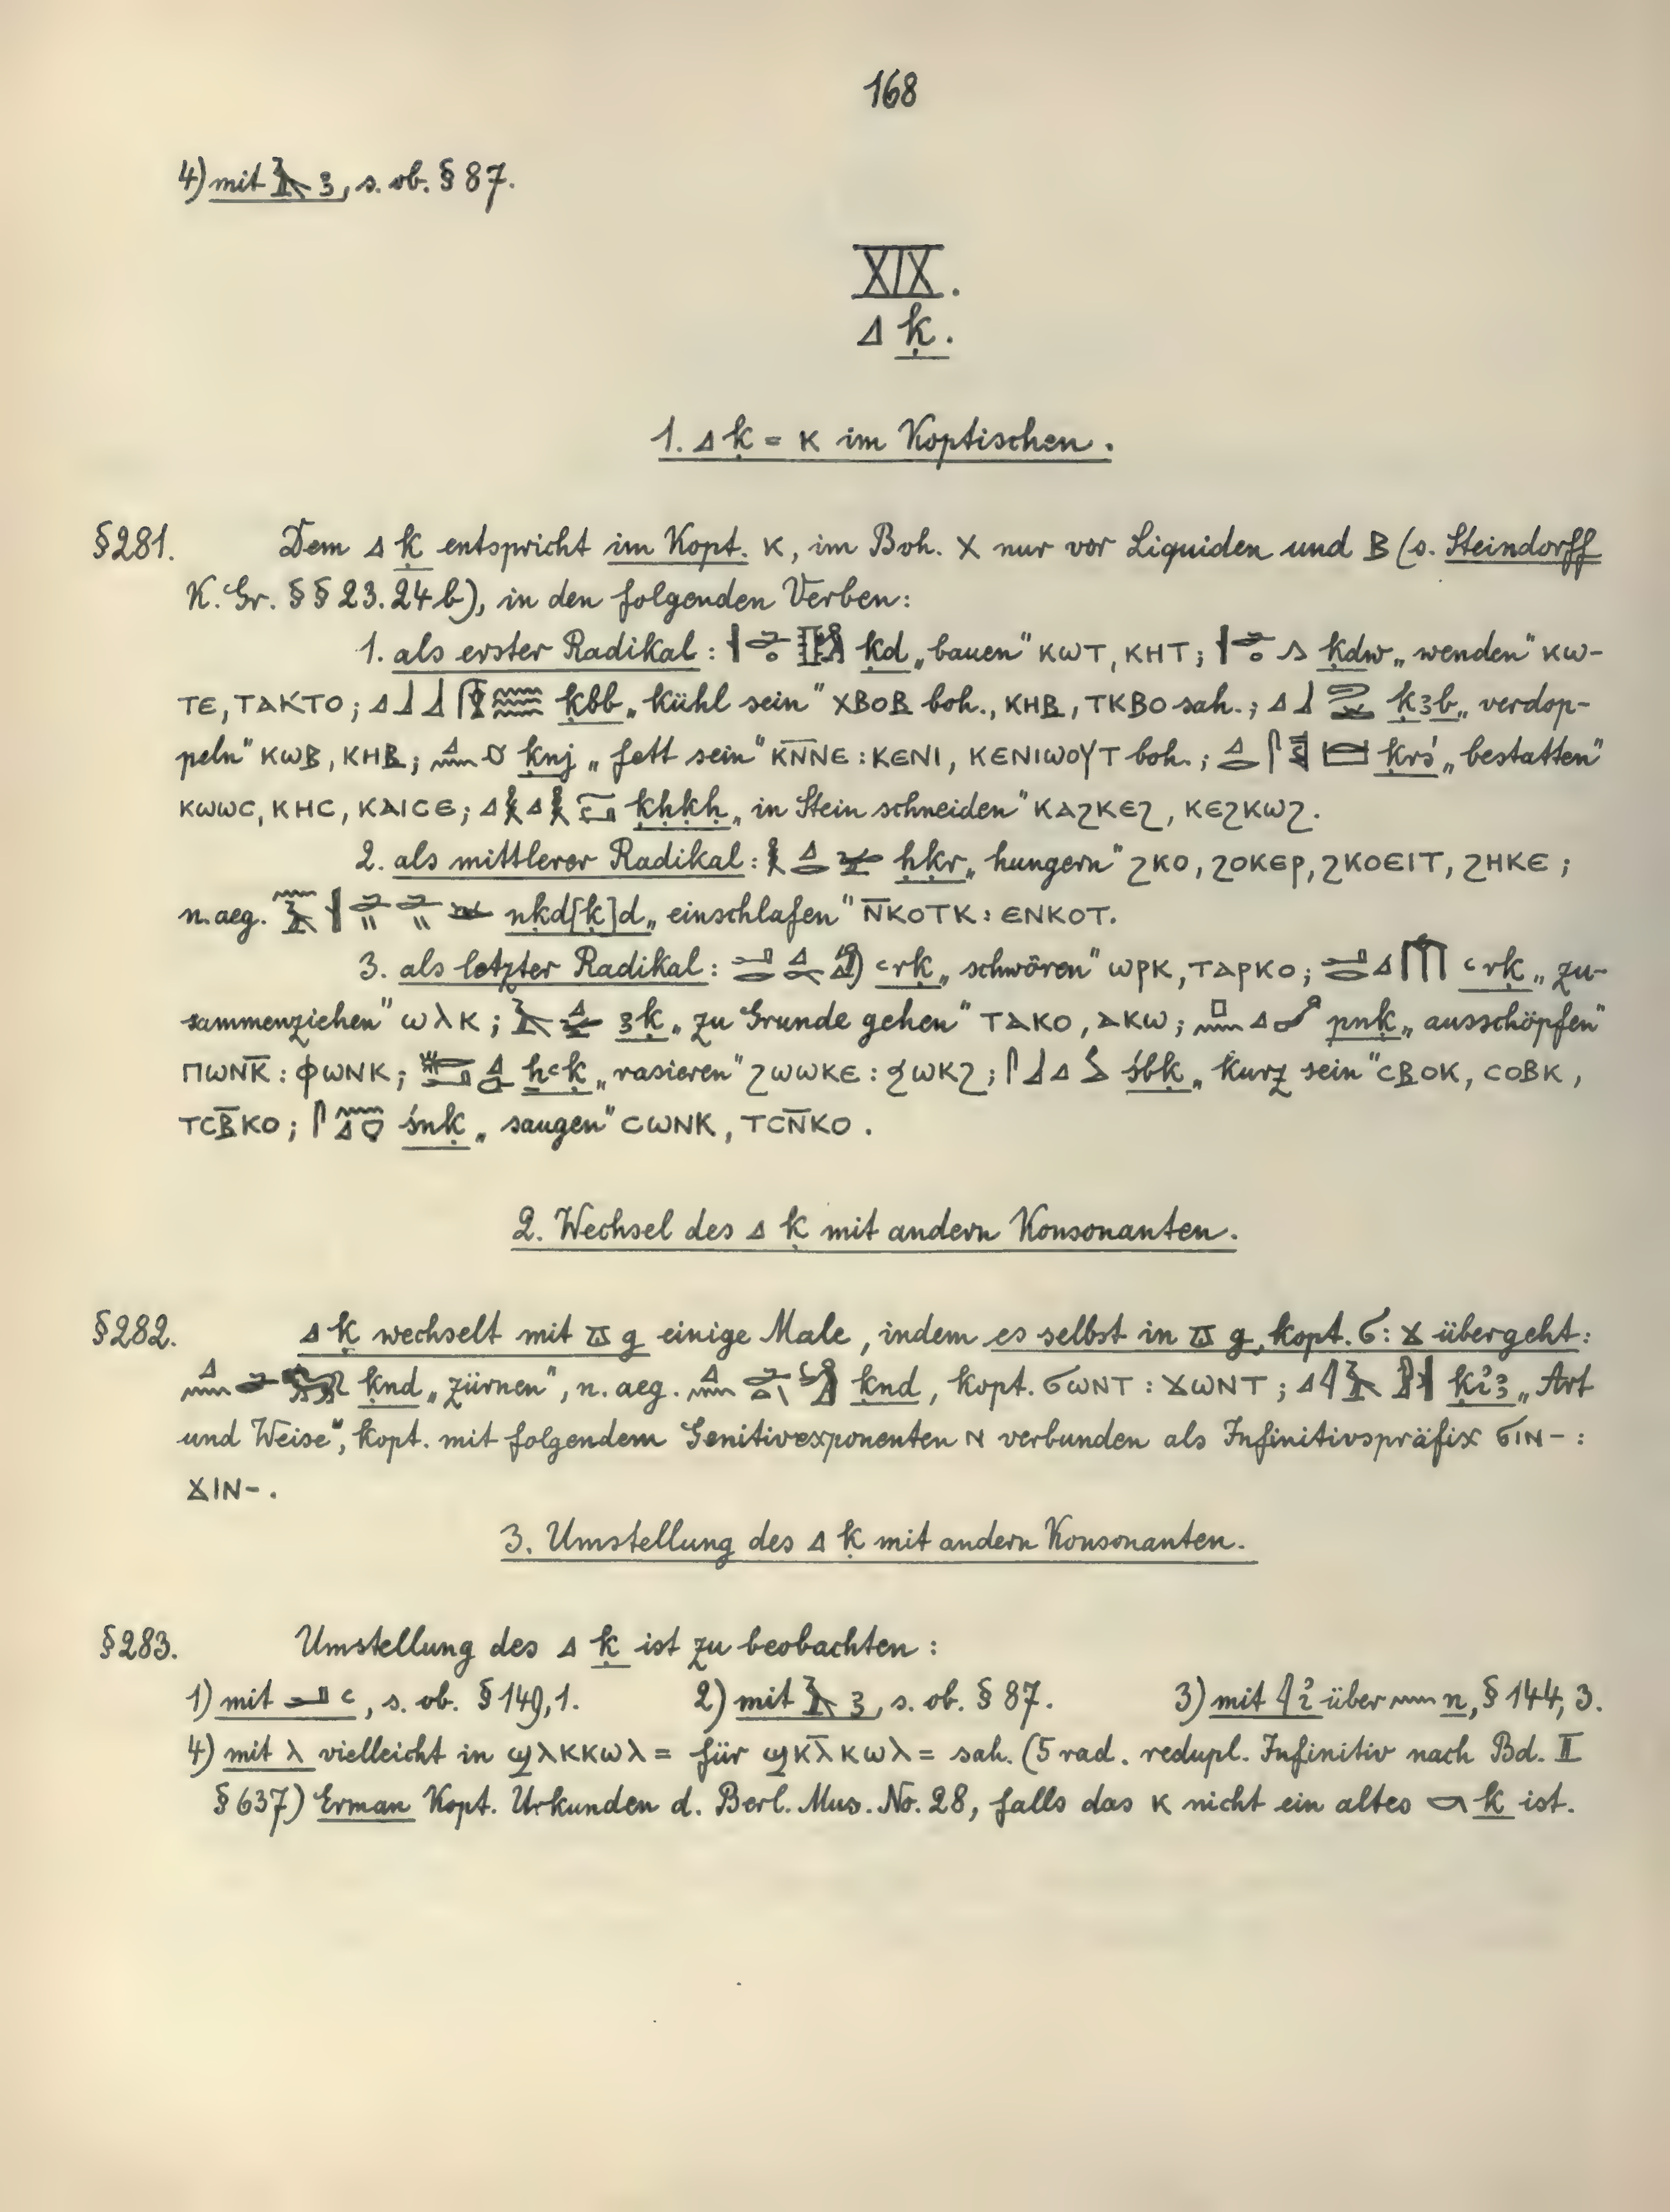 168
4) mit 𓄿 ꜣ, s. ob. § 87.
XIX.
𓈎 ḳ.
1. 𓈎 ḳ = ⲕ im Koptischen.
§ 281. Dem 𓈎 ḳ entspricht im Kopt. ⲕ, im Boh. ⲭ nur vor Liquiden und ⲃ (s. Steindorff
K. Gr. §§ 23. 24 b), in den folgenden Verben:
1. als erster Radikal: ḳd „bauen" ⲕⲱⲧ, ⲕⲏⲧ; ḳdw „wenden" ⲕⲱ-
ⲧⲉ, ⲧⲁⲕⲧⲟ; ḳbb „kühl sein" ⲭⲃⲟⲃ boh., ⲕⲏⲃ, ⲧⲕⲃⲟ sah.; ḳꜣb „verdop-
peln" ⲕⲱⲃ, ⲕⲏⲃ; ḳnj „fett sein" ⲕⲛ̅ⲛⲉ : ⲕⲉⲛⲓ, ⲕⲉⲛⲓⲱⲟⲩⲧ boh.; ḳrś „bestatten"
ⲕⲱⲱⲥ, ⲕⲏⲥ, ⲕⲁⲓⲥⲉ; ḳḥḳḥ „in Stein schneiden" ⲕⲁϩⲕⲉϩ, ⲕⲉϩⲕⲱϩ.
2. als mittlerer Radikal: ḥḳr „hungern" ϩⲕⲟ, ϩⲟⲕⲉⲣ, ϩⲕⲟⲉⲓⲧ, ϩⲏⲕⲉ;
n. aeg. nḳd[ḳ]d „einschlafen" ⲛ̅ⲕⲟⲧⲕ : ⲉⲛⲕⲟⲧ.
3. als letzter Radikal: ꜥrḳ „schwören" ⲱⲣⲕ, ⲧⲁⲣⲕⲟ; ꜥrḳ „zu-
sammenziehen" ⲱⲗⲕ; ꜣḳ „zu Grunde gehen" ⲧⲁⲕⲟ, ⲁⲕⲱ; pnḳ „ausschöpfen"
ⲡⲱⲛⲕ̅ : ⲫⲱⲛⲕ; ẖꜥḳ „rasieren" ϩⲱⲱⲕⲉ : ϧⲱⲕϩ; śbḳ „kurz sein" ⲥⲃⲟⲕ, ⲥⲟⲃⲕ,
ⲧⲥⲃ̅ⲕⲟ; śnḳ „saugen" ⲥⲱⲛⲕ, ⲧⲥⲛ̅ⲕⲟ.
2. Wechsel des 𓈎 ḳ mit andern Konsonanten.
§ 282. 𓈎 ḳ wechselt mit 𓎼 g einige Male, indem es selbst in 𓎼 g, kopt. ϭ : ϫ übergeht:
ḳnd „zürnen", n. aeg. ḳnd, kopt. ϭⲱⲛⲧ : ϫⲱⲛⲧ; ḳỉꜣ „Art
und Weise", kopt. mit folgendem Genitivexponenten ⲛ verbunden als Infinitivspräfix ϭⲓⲛ- :
ϫⲓⲛ-.
3. Umstellung des 𓈎 ḳ mit andern Konsonanten.
§ 283. Umstellung des 𓈎 ḳ ist zu beobachten:
1) mit 𓂝 ꜥ, s. ob. § 149, 1. 2) mit 𓄿 ꜣ, s. ob. § 87. 3) mit 𓇋 ỉ über 𓈖 n, § 144, 3.
4) mit ⲗ vielleicht in ϣⲗⲕⲕⲱⲗ= für ϣⲕⲗ̅ⲕⲱⲗ= sah. (5 rad. redupl. Infinitiv nach Bd. II
§ 637) Erman Kopt. Urkunden d. Berl. Mus. No. 28, falls das ⲕ nicht ein altes 𓎡 k ist.